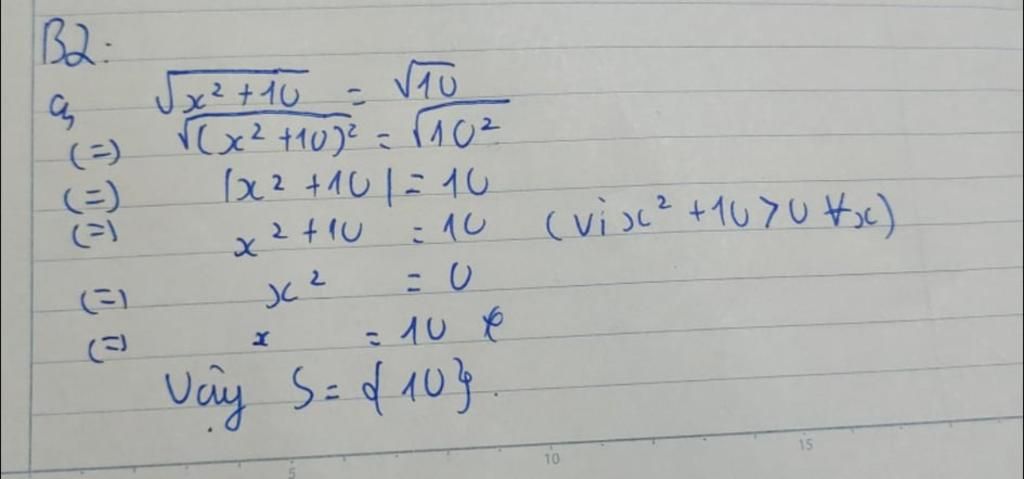 B2:
a, √(x² + 10) = √10
(=) √((x² + 10)²) = √(10²)
(=) |x² + 10| = 10
(=) x² + 10 = 10 (vì x² + 10 > 0 ∀x)
(=) x² = 0
(=) x = 10
Vậy S = {10}.
5 10 15